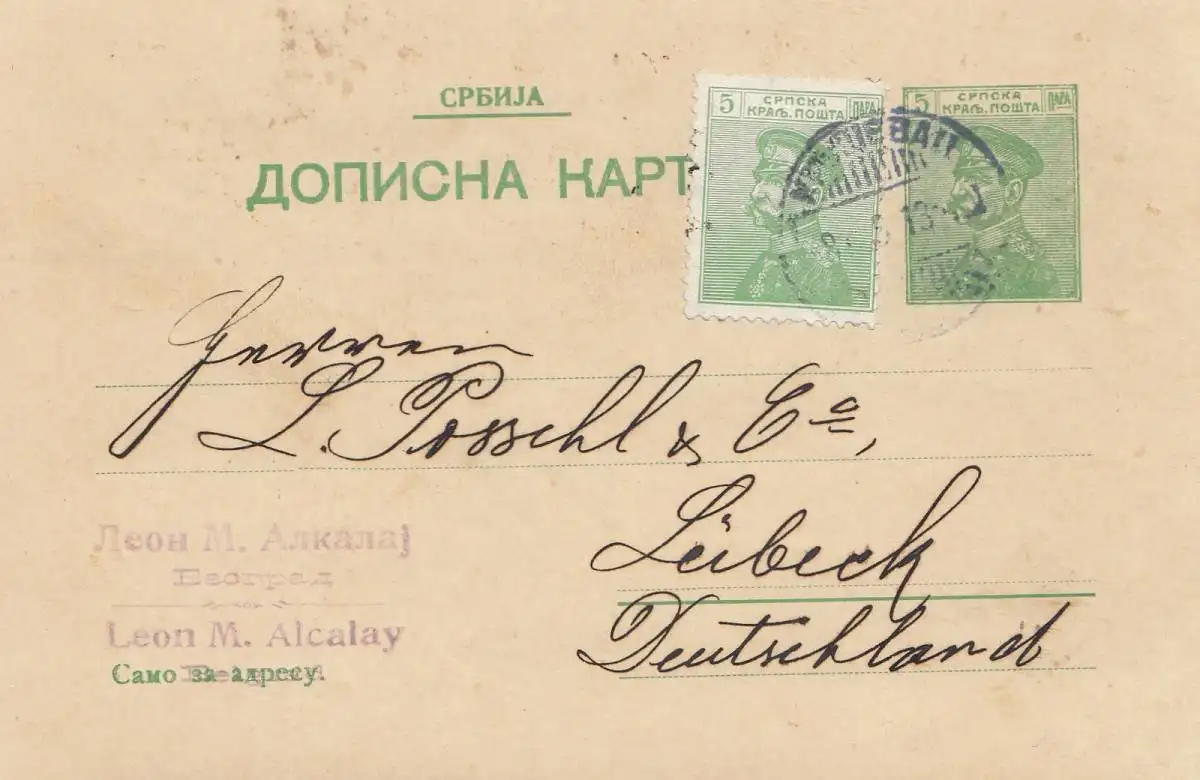 СРБИЈА
ДОПИСНА КАРТ
5 СРПСКА ПАРА
КРАЉ. ПОШТА
5 СРПСКА ПАРА
КРАЉ. ПОШТА
Herren
L. Possehl & Co,
Lübeck
Deutschland
Леон М. Алкалај
Београд
Leon M. Alcalay
Само за адресу.